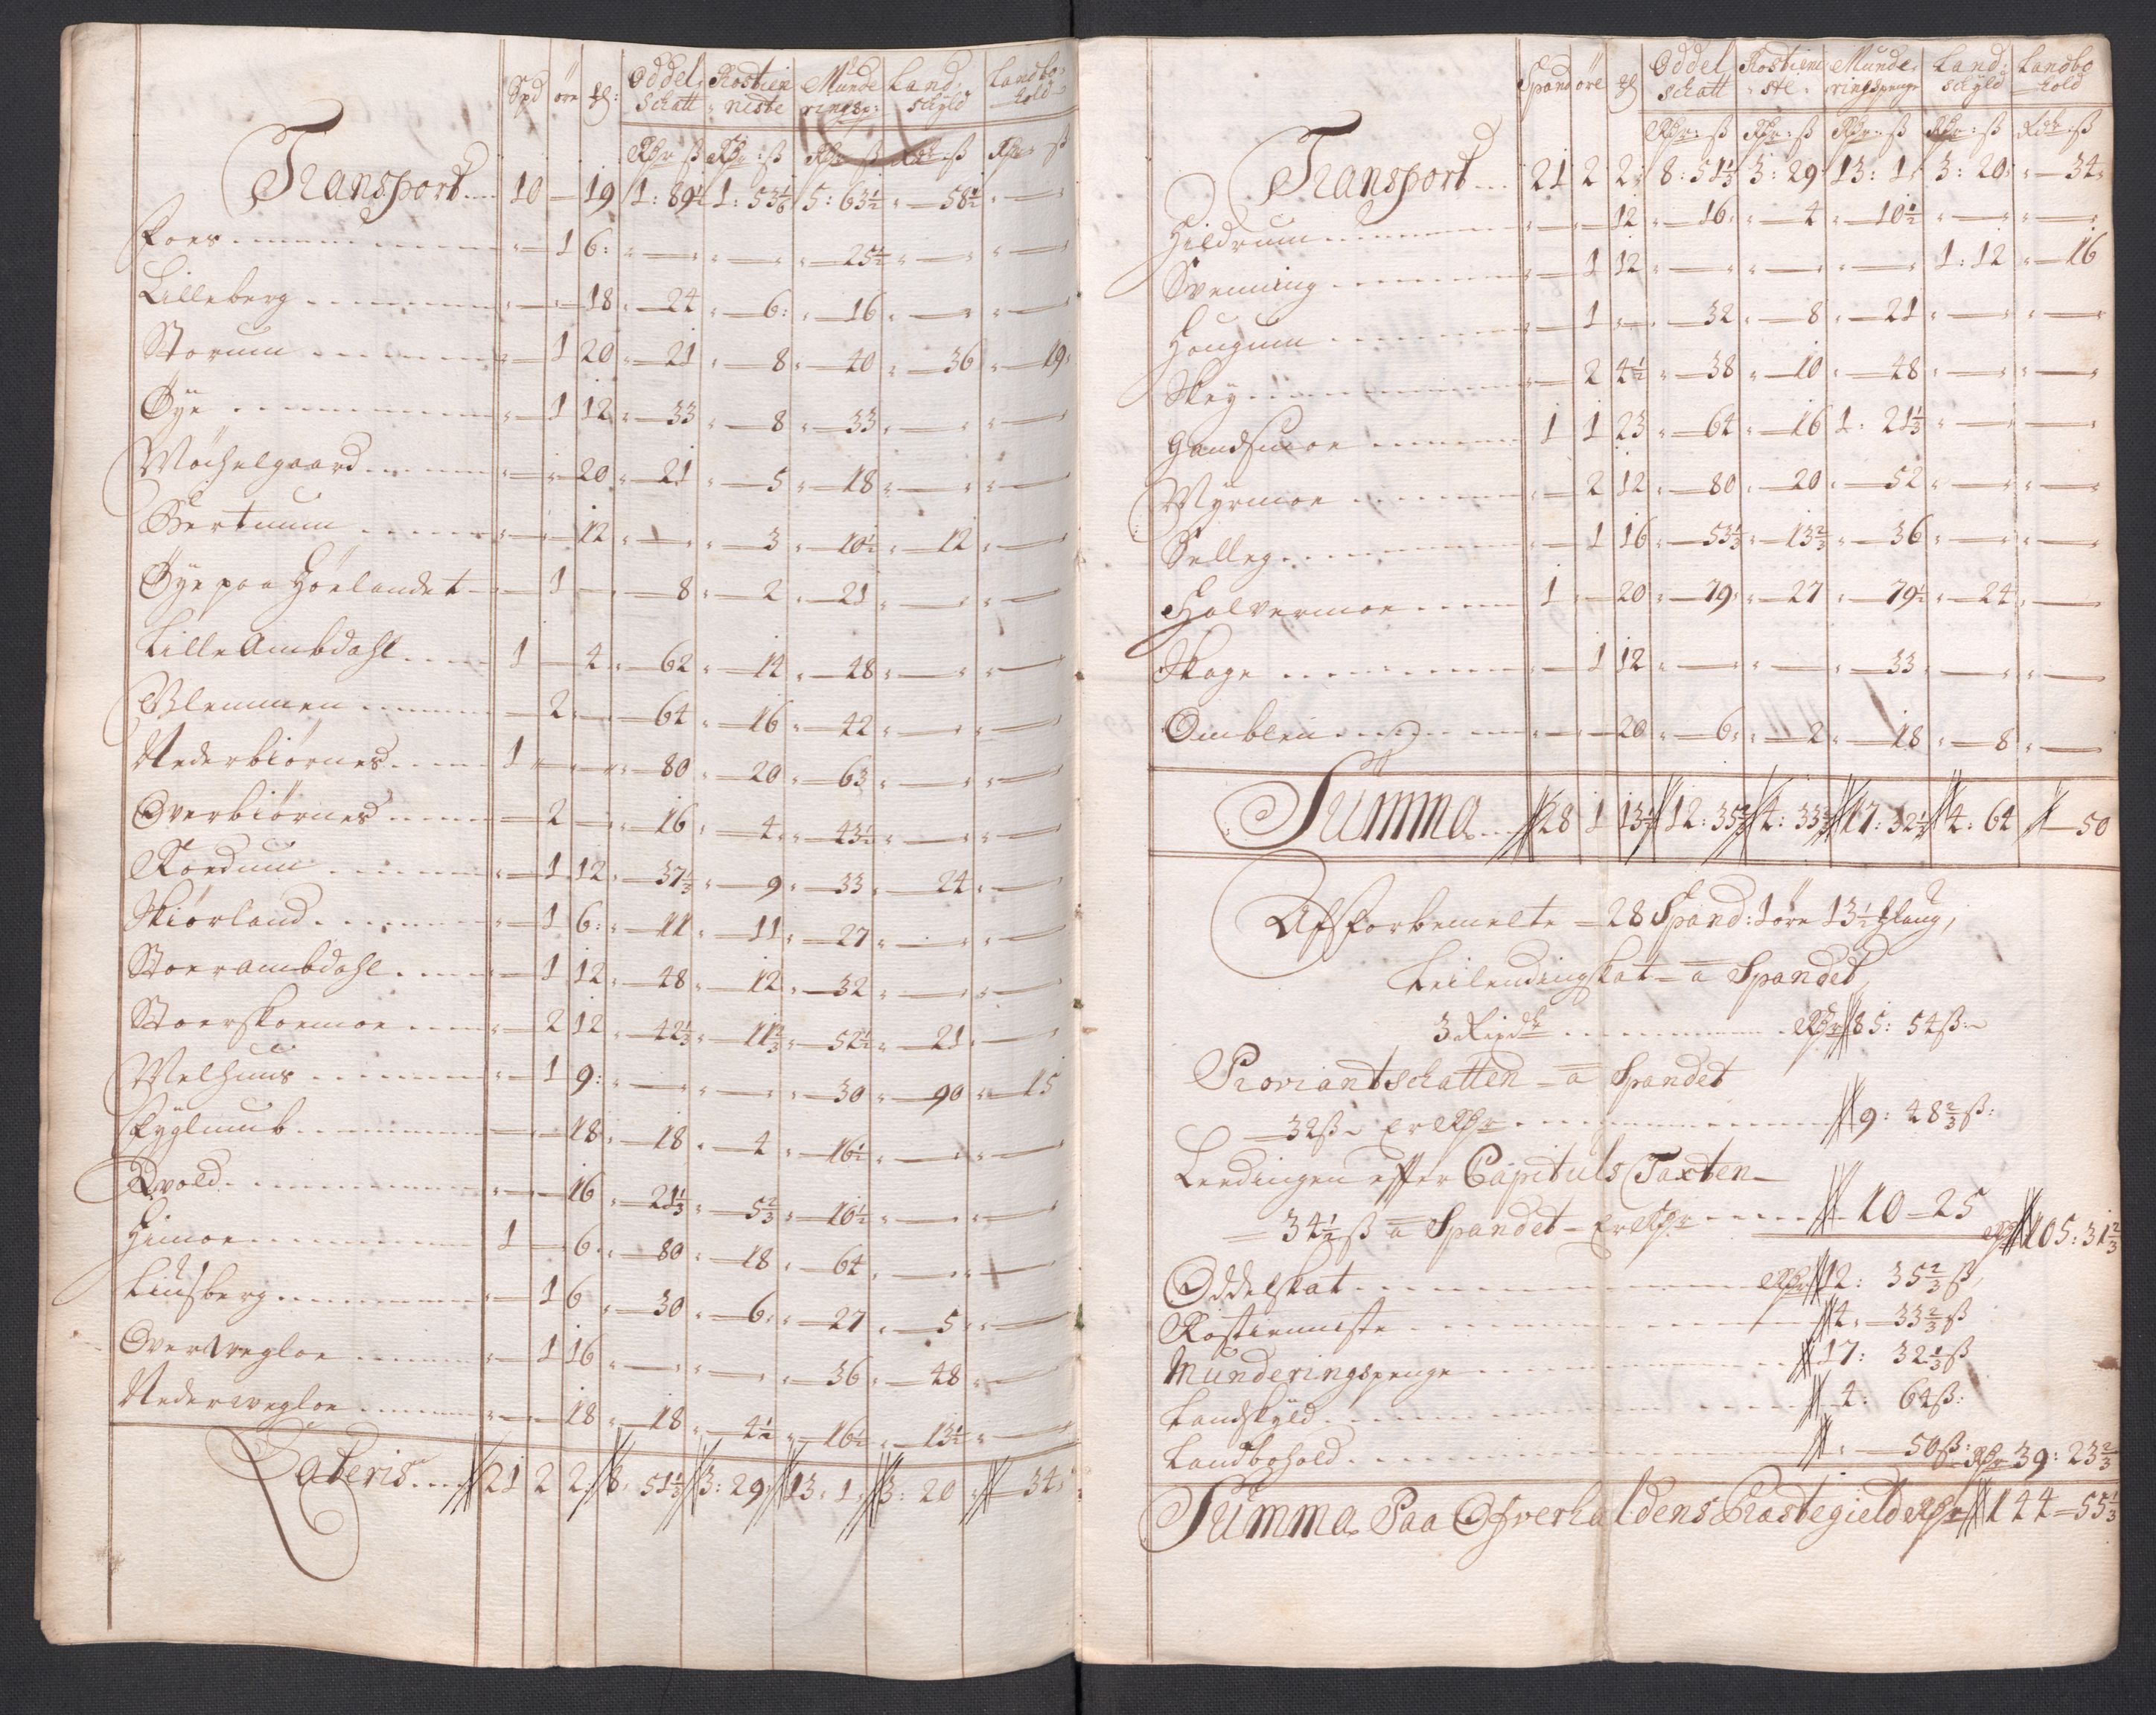 Spd öre Oddel Schatt Rostien neste Munde ringsp: Land schyld Landbo hold
Rdr ß Rdr: ß Rdr ß Rdr: ß Rdr ß
Transport.... 10 — 19 1: 89½ 1: 53 5: 63½ „ — 58½ „ —
Foes „ — 1 6: „ — „ — „ — 25½ „ — „ —
Lilleberg „ — „ — 18 „ — 24 „ — 6: „ — 16 „ — „ —
Storum „ — 1 20 „ — 21 „ — 8 „ — 40 „ — 36 „ — 19
Öye „ — 1 12 „ — 33 „ — 8 „ — 33 „ — „ —
Wöchelgaard „ — „ — 20 „ — 21 „ — 5 „ — 18 „ — „ —
Bertnum „ — „ — 12 „ — „ — 3 „ — 10½ „ — 12 „ —
Öye paa Höelandet „ — 1 — „ — 8 „ — 2 „ — 21 „ — „ —
Lille Ambdahl 1 — 4 „ — 62 „ — 14 „ — 48 „ — „ —
Blemmen — 2 — „ — 64 „ — 16 „ — 42 „ — „ —
Nederbiörnes 1 „ — „ — 80 „ — 20 „ — 63 „ — „ —
Overbiörnes — 2 — „ — 16 „ — 4 „ — 43½ „ — „ —
Roedum „ — 1 12 „ — 37⅓ „ — 9 „ — 33 „ — 24 „ —
Skiörland „ — 1 6: „ — 11 „ — 11 „ — 27 „ — „ —
Stoerambdahl „ — 1 12 „ — 48 „ — 12 „ — 32 „ — „ —
Stoerskoemoe „ — 2 12 „ — 42⅓ „ — 11⅔ „ — 52½ „ — 21 „ —
Melhuus „ — 1 9: „ — „ — „ — 30 „ — 90 „ — 15
— — 18 „ — 18 „ — 4 „ — 16½ „ — „ —
Qvold „ — „ — 16 „ — 21⅓ „ — 5⅔ „ — 16½ „ — „ —
Himoe 1 — 6 „ — 80 „ — 18 „ — 64 „ — „ —
Liusberg „ — 1 6 „ — 30 „ — 6: „ — 27 „ — 5 „ —
Overvegloe „ — 1 16 „ — „ — „ — 36 „ — 48 „ —
Nedervegloe „ — „ — 18 „ — 18 „ — 4½ „ — 16½ „ — 13½ „ —
Lateris.... 21 2 2 8: 51⅓ 3: 29 13: 1: 3: 20 „ — 34
Spand öre Oddel schatt Rostiene ste Munde ringspenge Land: schyld Landbo hold
Rdr: ß Rdr: ß Rdr: ß Rdr: ß Rdr: ß
Transport... 21 2 2: 8: 51⅓ 3: 29 13: 1: 3: 20: „ — 34
Hildrum „ — „ — 12 „ — 16 „ — 4 „ — 10½ „ — „ —
Svenning „ — 1 12 „ — „ — „ — 1: 12 „ — 16
Hougum „ — 1 „ — „ — 32 „ — 8 „ — 21 „ — „ —
Skey „ — 2 4½ „ — 38 „ — 10 „ — 48 „ — „ —
Gandsmoe 1 1 23 „ — 64 „ — 16 1: 21⅓ „ — „ —
Myrmoe „ — 2 12 „ — 80 „ — 20 „ — 52 „ — „ —
Selleg „ — 1 16 „ — 53⅓ „ — 13⅔ „ — 36 „ — „ —
Halvermoe 1 „ — 20 „ — 79 „ — 27 „ — 79½ „ — 24 „ —
Skage „ — 1 12 „ — „ — „ — 33 „ — „ —
Omblen „ — „ — 20 „ — 6 „ — 2 „ — 18 „ — 8 „ —
Summa.... 28 1 13½ 12: 35⅔ 4: 33⅔ 17: 32⅓ 4: 64 — 50
Af forbemelte — 28 Spand: 1 öre 13½ Mlaug,
Leilendingskat — a Spandet
3 Rixdr Rdr 85: 54 ß
Proviantschatten — a Spandet
— 32 ß er Rdr 9: 48⅔ ß:
Leedingen efter Capituls Taxten
— 34½ ß a Spandet — er Rdr 10 — 25 Rdr 105: 31⅔
Oddelskat Rdr 12: 35⅔ ß
Rostienneste 4: — 33⅔ ß
Munderingspenge 17: 32⅓ ß
Landskyld 4: 64 ß:
Landbohold „ — 50 ß: Rdr 39: 23⅔
Summa Paa Ofverhaldens Præstegield Rdr 144 — 55⅓